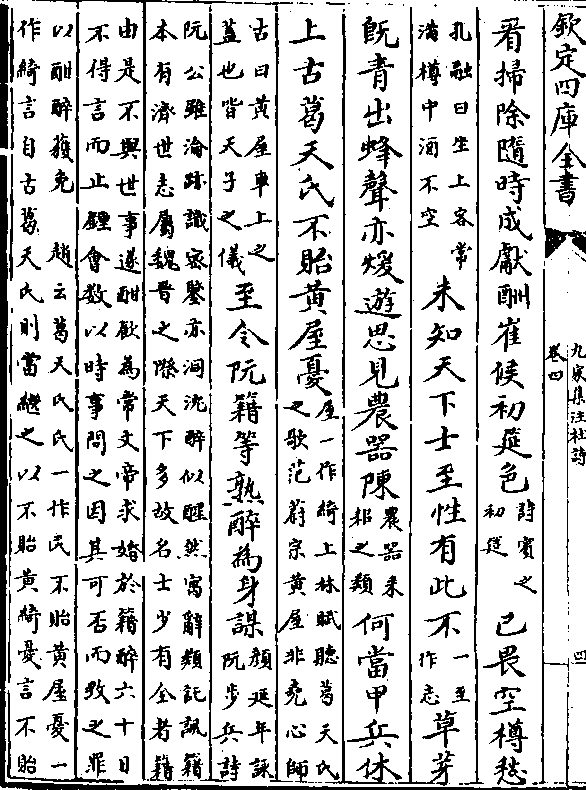 欽定四庫全書
九家集注杜詩
卷四
四
看掃除隨時成獻酬崔侯初筵色
詩賓之
初筵
已畏空樽愁
孔融曰坐上客常
滿樽中酒不空
未知天下士至性有此不
一至
作志
草芽
既青出蜂聲亦煖遊思見農器陳
農器耒
耜之類
何當甲兵休
上古葛天氏不貽黃屋憂
屋一作綺上林賦聽葛天氏
之歌范蔚宗黃屋非堯心師
古曰黃屋車上之
蓋也皆天子之儀
至今阮籍等熟醉為身謀
顔延年詠
阮步兵詩
阮公雖淪跡識宻鑒亦洞沈醉似醒然寓辭類託諷籍
本有濟世志屬魏晉之際天下多故名士少有全者籍
由是不與世事遂酣飲為常文帝求婚於籍醉六十日
不得言而止鍾會数以時事問之因其可否而致之罪
以酣醉獲免 趙云葛天氏氏一作民不貽黃屋憂一
作綺言自古葛天氏則當繼之以不貽黃綺憂言不貽